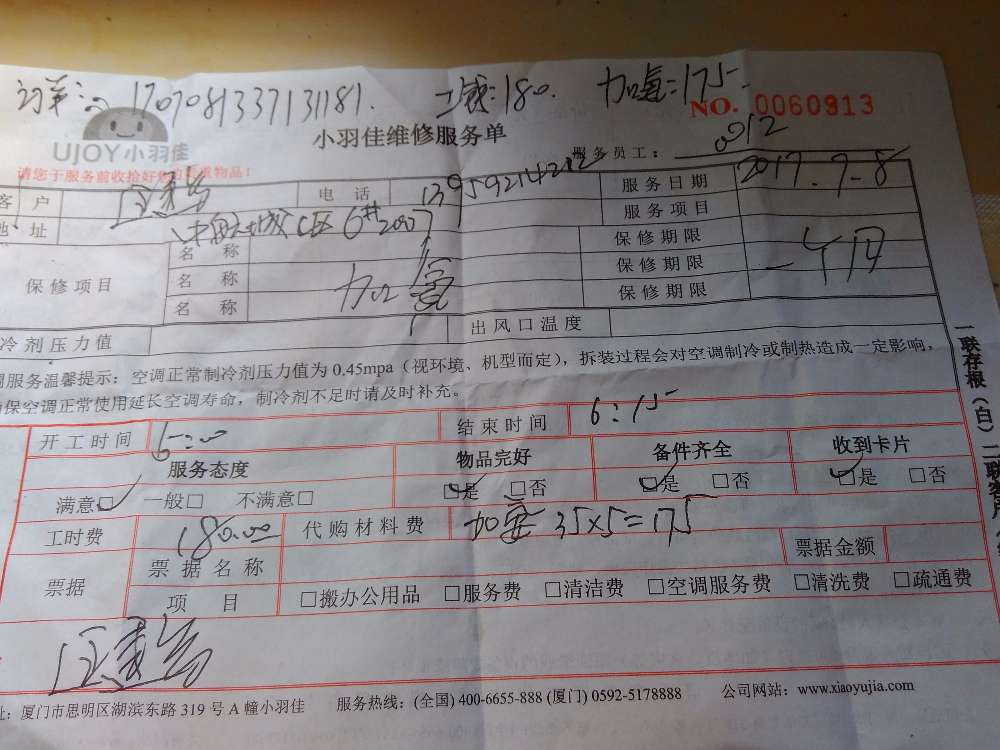 订单: 1707081337131181. 工钱:180. 加氟:175
UJOY小羽佳
小羽佳维修服务单
NO. 0060913
请您于服务前收拾好您的贵重物品!
服务员工: 0912
客户 电话 13959214212 服务日期 2017.7-8
地址 C区6#2007 服务项目
保修项目 名称 保修期限
名称 加 保修期限 一个月
名称 保修期限
冷剂压力值 出风口温度
调服务温馨提示:空调正常制冷剂压力值为0.45mpa(视环境、机型而定),拆装过程会对空调制冷或制热造成一定影响,
确保空调正常使用延长空调寿命,制冷剂不足时请及时补充。
开工时间 结束时间 6:15
服务态度 物品完好 备件齐全 收到卡片
满意□ 一般□ 不满意□ □是 □否 □是 □否 □是 □否
工时费 180.00 代购材料费 加 35×5=175 票据金额
票据 票据名称
项目 □搬办公用品 □服务费 □清洁费 □空调服务费 □清洗费 □疏通费
址:厦门市思明区湖滨东路319号A幢小羽佳 服务热线:(全国) 400-6655-888 (厦门) 0592-5178888 公司网站:www.xiaoyujia.com
一联存根(白)二联